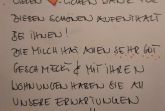 DIESEN SCHÖNEN AUFENTHALT
BEI IHNEN!
DIE MILCH HAT ALLEN SEHR GUT
GESCHMECKT & MIT IHREN
WOHNUNGEN HABEN SIE ALL
UNSERE ERWARTUNGEN